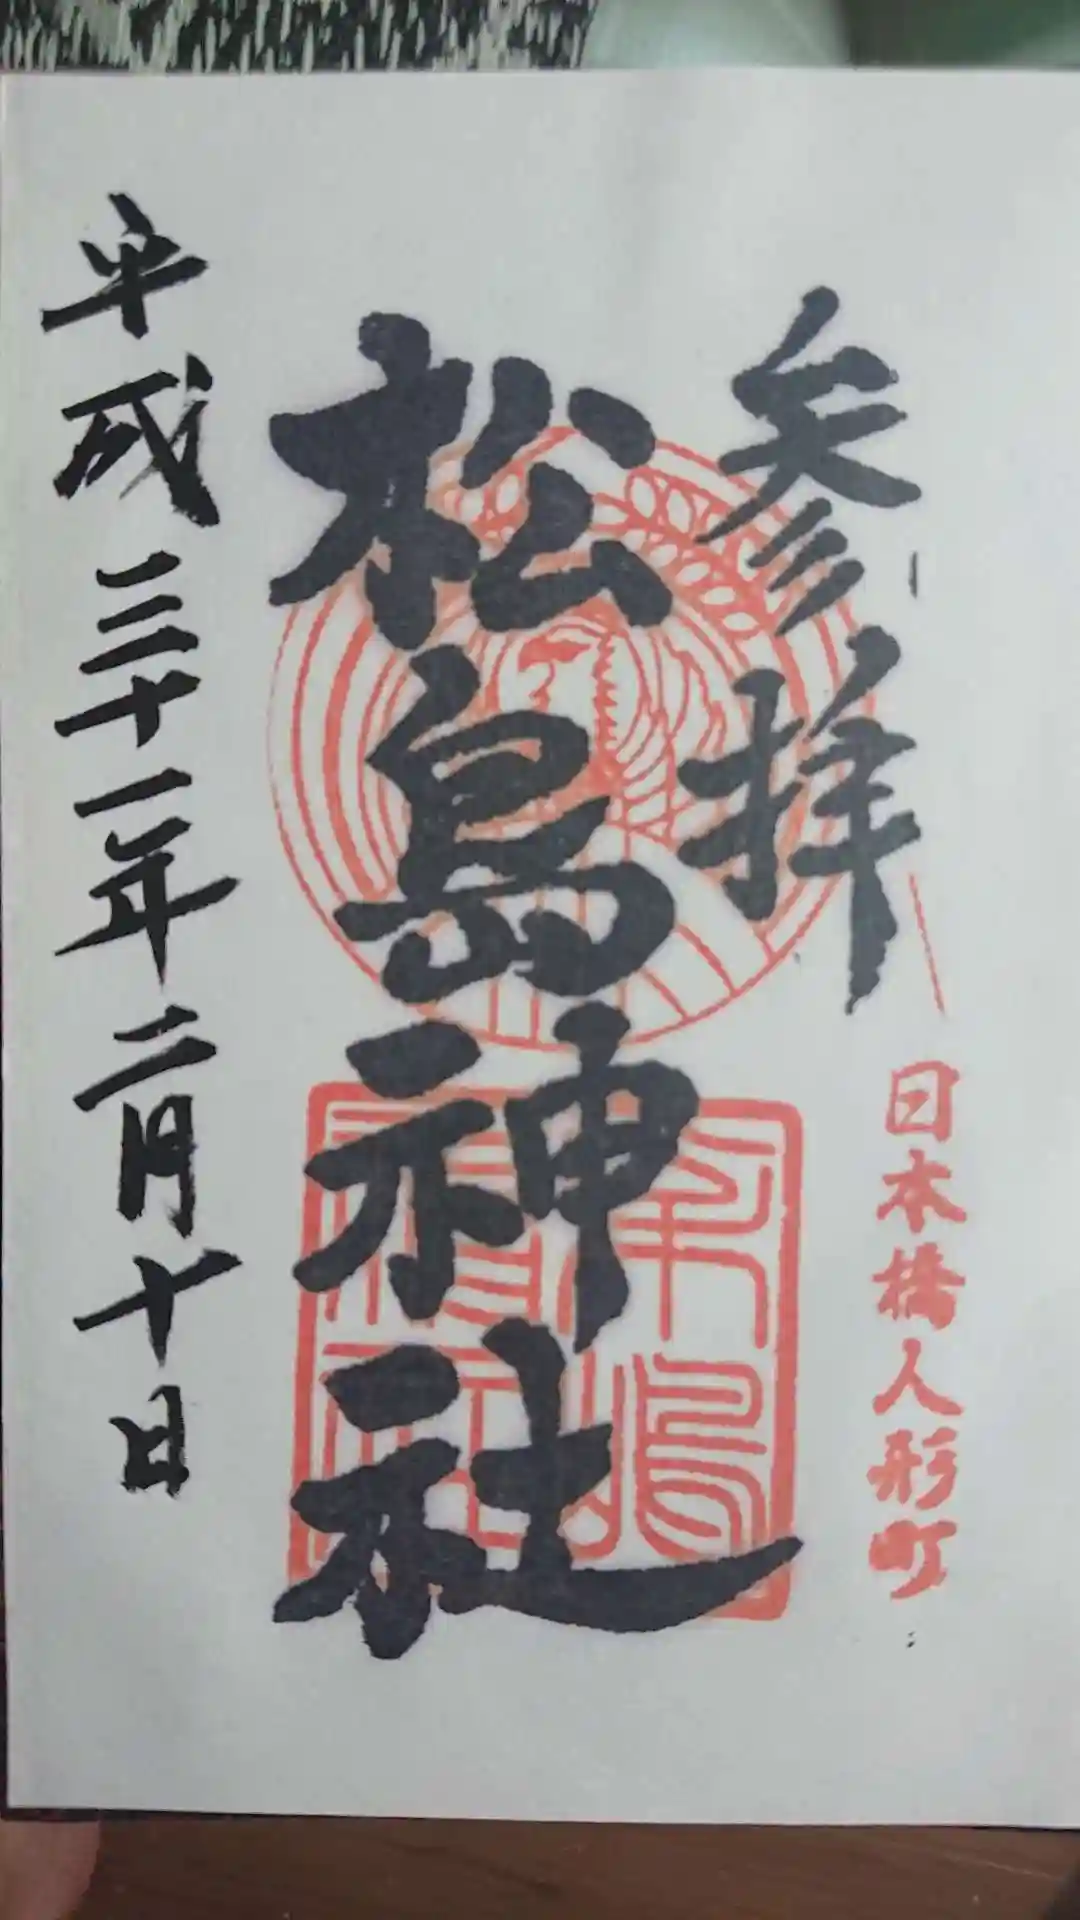 参拝
日本橋人形町
松島神社
平成三十一年二月十日